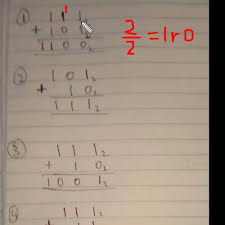 1
① 1 1 1
+ 1 0 1₂
1 1 0 0₂
2/2 = 1 r 0
② 1 0 1₂
+ 1 0₂
1 1 1₂
③ 1 1 1₂
+ 1 0₂
1 0 0 1₂
④ 1 1 1₂
+